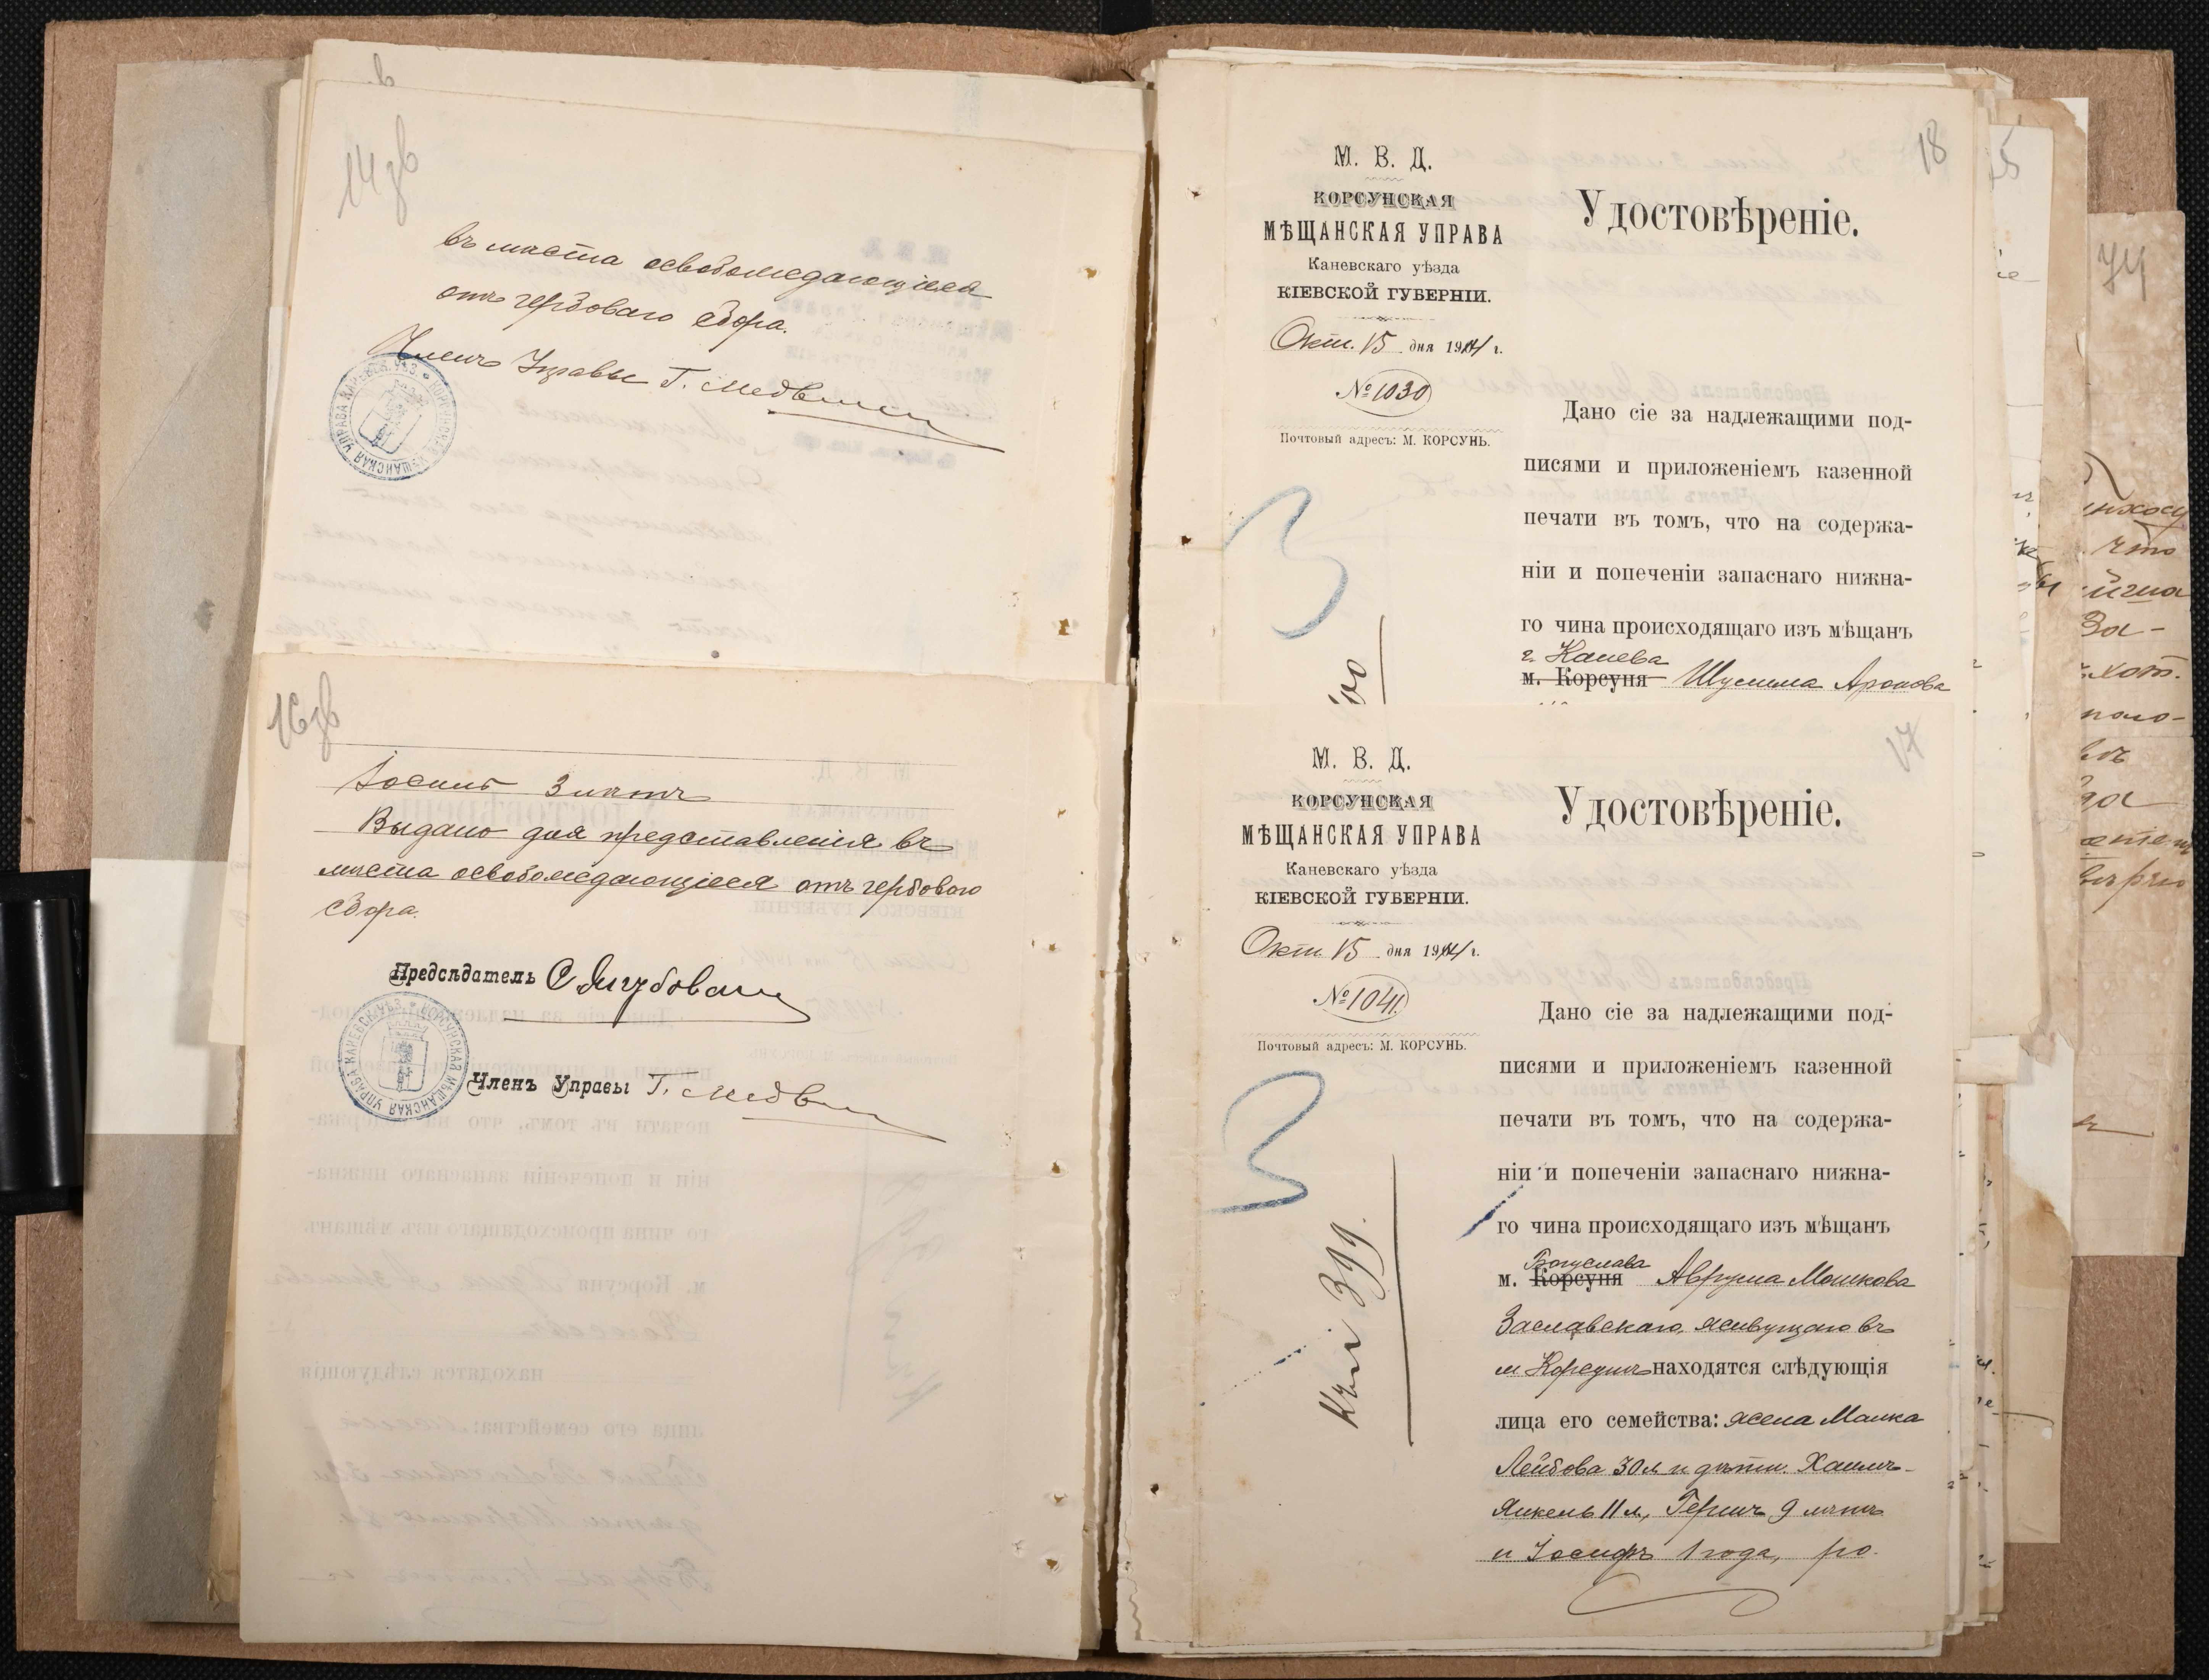 14 зв
въ места освобождающіеся
отъ гербоваго сбора.
Членъ Управы Г. Медв
КОРСУНСКАЯ МѢЩАНСКАЯ УПРАВА КАНЕВСК. УѢЗ.
16 зв
Іосиль 3 летъ
Выдано для представленія въ
места освобождающіеся отъ гербового
сбора.
Предсѣдатель С
КОРСУНСКАЯ МѢЩАНСКАЯ УПРАВА КАНЕВСК. УѢЗ.
Членъ Управы Г. Медв
18
М. В. Д.
КОРСУНСКАЯ
МѢЩАНСКАЯ УПРАВА
Каневскаго уѣзда
КІЕВСКОЙ ГУБЕРНІИ.
Окт. 15 дня 1914 г.
№ 1030
Почтовый адресъ: М. КОРСУНЬ.
Удостовѣреніе.
Дано сіе за надлежащими под-
писями и приложеніемъ казенной
печати въ томъ, что на содержа-
ніи и попеченіи запаснаго нижна-
го чина происходящаго изъ мѣщанъ
г. Канева
м. Корсуня Шулима Аронова
3
17
М. В. Д.
КОРСУНСКАЯ
МѢЩАНСКАЯ УПРАВА
Каневскаго уѣзда
КІЕВСКОЙ ГУБЕРНІИ.
Окт. 15 дня 1914 г.
№ 1041.
Почтовый адресъ: М. КОРСУНЬ.
Удостовѣреніе.
Дано сіе за надлежащими под-
писями и приложеніемъ казенной
печати въ томъ, что на содержа-
ніи и попеченіи запаснаго нижна-
го чина происходящаго изъ мѣщанъ
Богуслава
м. Корсуня Аврума Мошкова
Заславскаго, живущаго въ
м Корсуне находятся слѣдующія
лица его семейства: жена Малка
Лейбова 30 л и дѣти: Хаимъ-
Янкель 11 л, Гершъ 9 летъ
и Іосифъ 1 года,
3
74
что